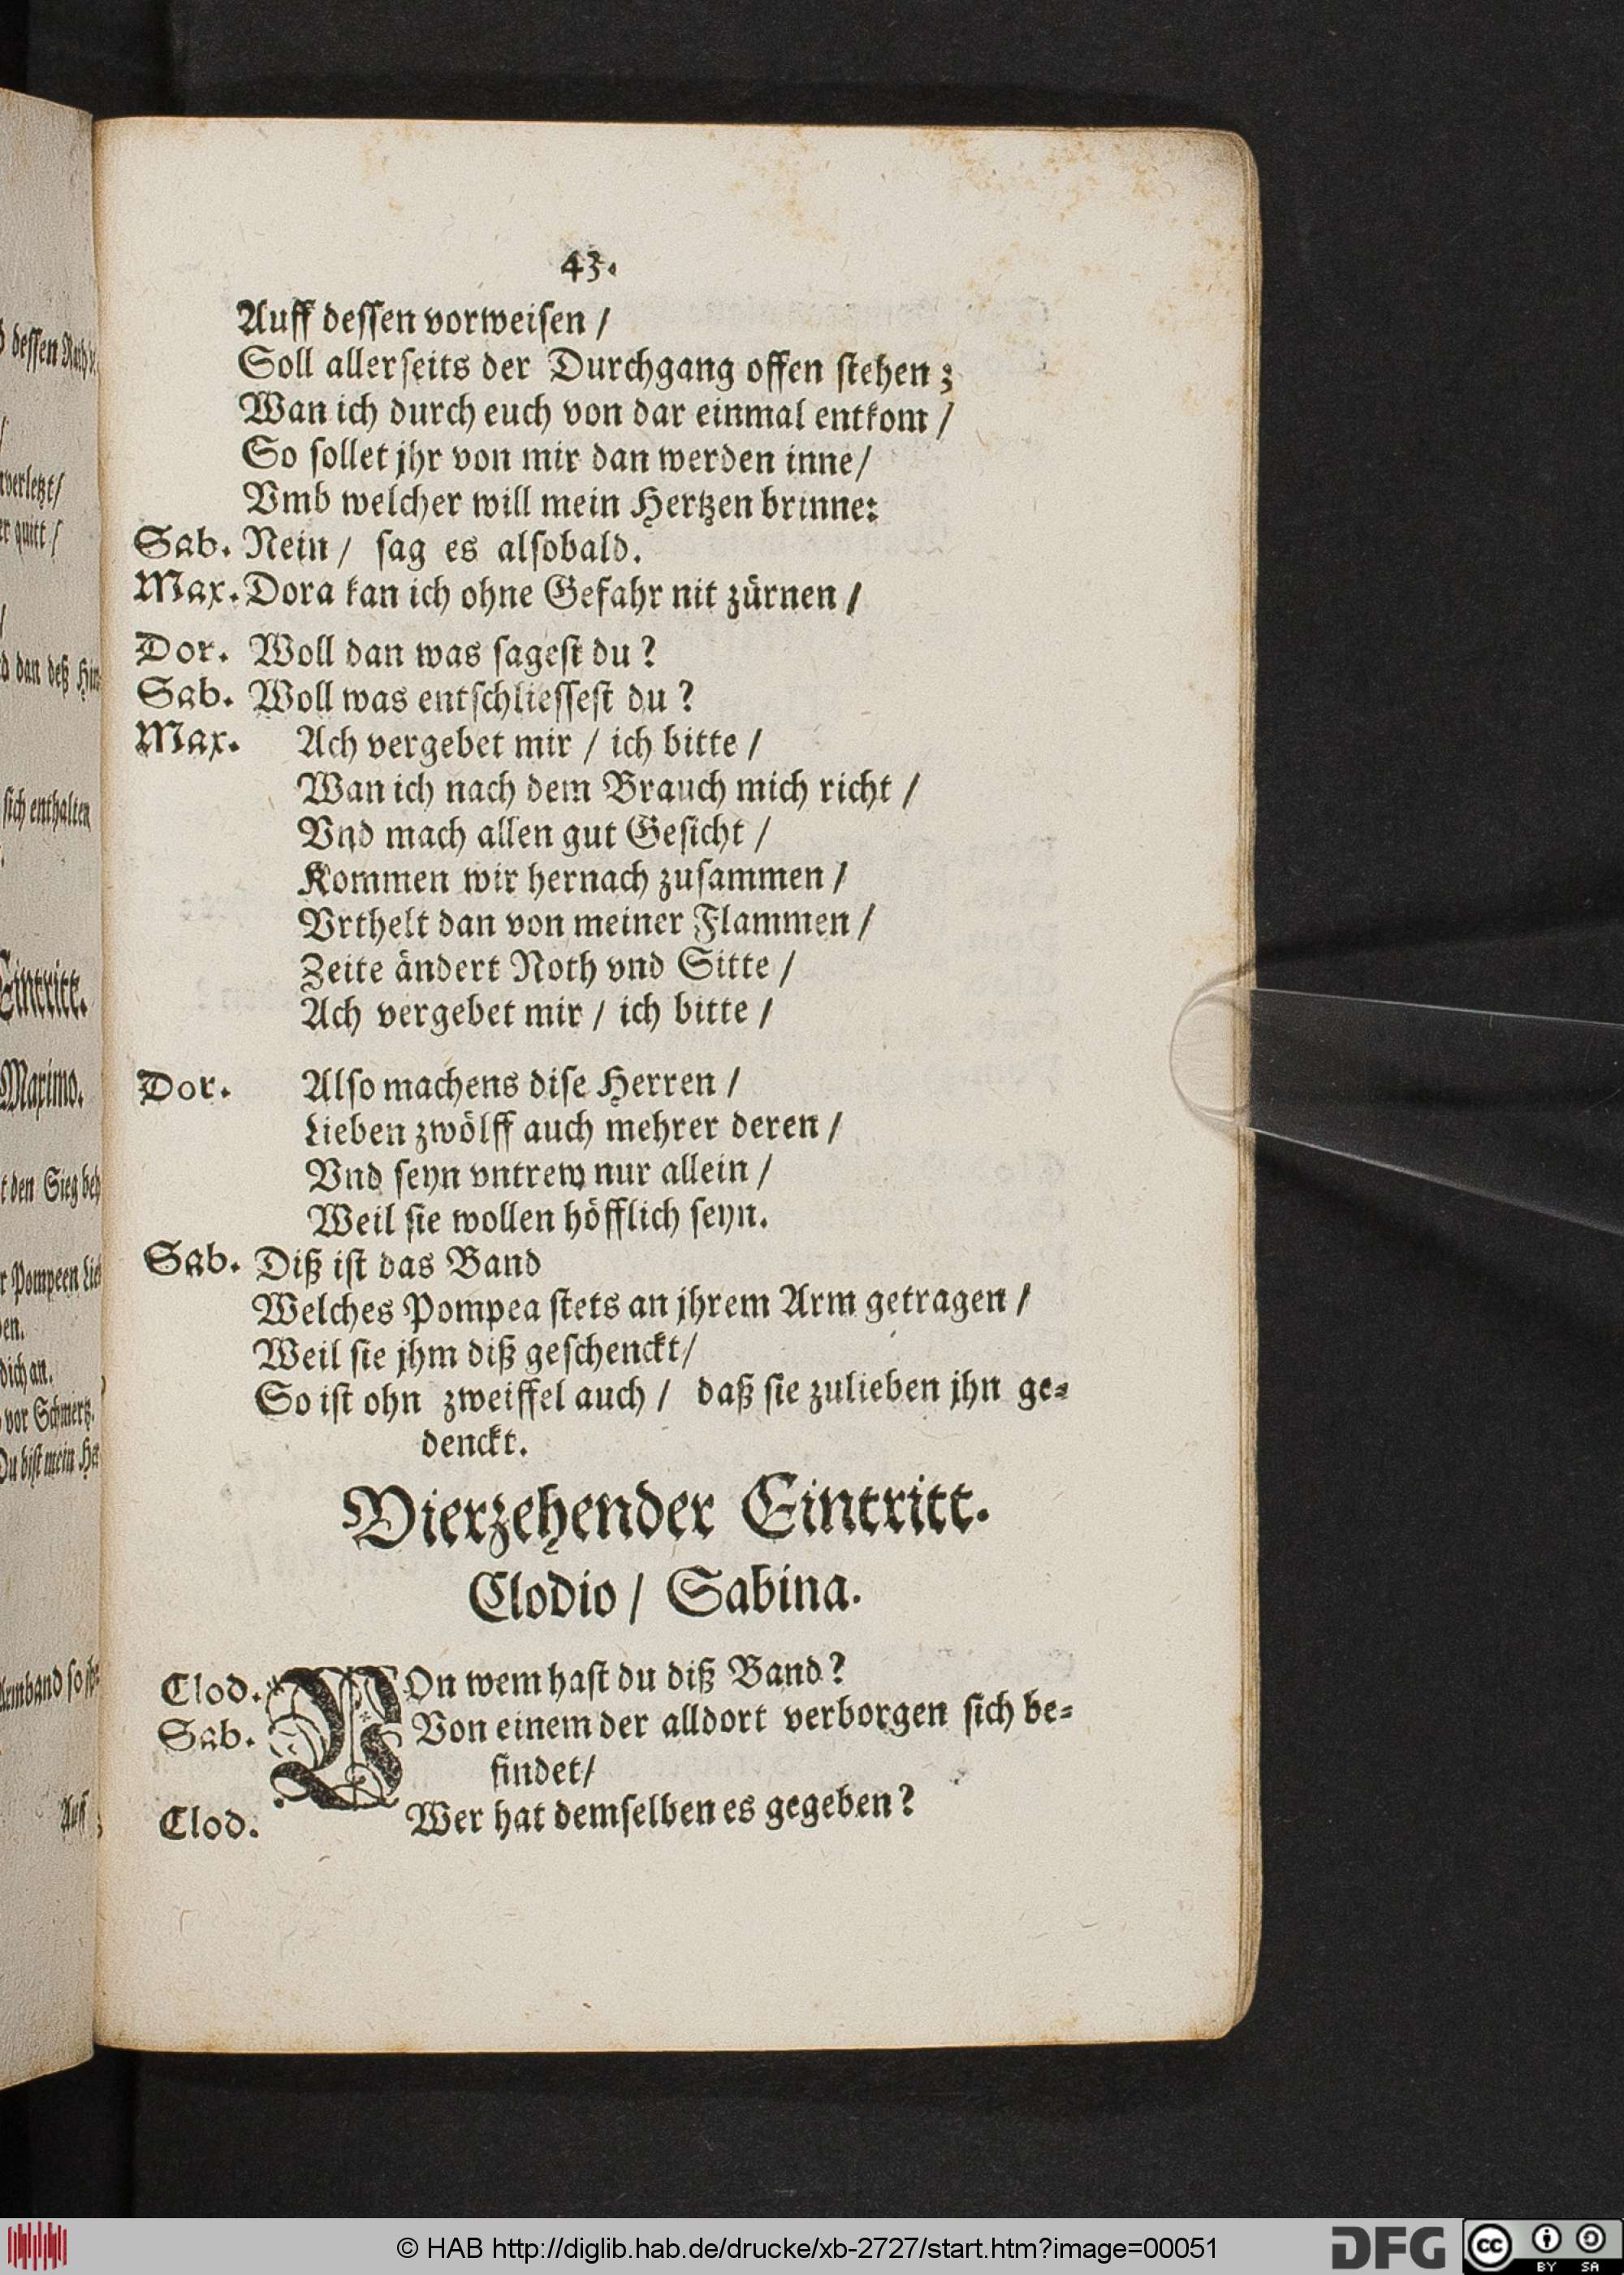 43.
Auff dessen vorweisen /
Soll allerseits der Durchgang offen stehen;
Wan ich durch euch von dar einmal entkom /
So sollet jhr von mir dan werden inne/
Vmb welcher will mein Hertzen brinne:
Sab. Nein / sag es alsobald.
Max. Dora kan ich ohne Gefahr nit zürnen /
Dor. Woll dan was sagest du?
Sab. Woll was entschliessest du?
Max. Ach vergebet mir / ich bitte /
Wan ich nach dem Brauch mich richt /
Vnd mach allen gut Gesicht /
Kommen wir hernach zusammen /
Vrthelt dan von meiner Flammen /
Zeite ändert Noth vnd Sitte /
Ach vergebet mir / ich bitte /
Dor. Also machens dise Herren /
Lieben zwölff auch mehrer deren /
Vnd seyn vntrew nur allein /
Weil sie wollen höfflich seyn.
Sab. Diß ist das Band
Welches Pompea stets an jhrem Arm getragen /
Weil sie jhm diß geschenckt/
So ist ohn zweiffel auch / daß sie zulieben jhn ge-
denckt.
Vierzehender Eintritt.
Clodio / Sabina.
Clod. VOn wem hast du diß Band?
Sab. Von einem der alldort verborgen sich be-
findet/
Clod. Wer hat demselben es gegeben?
dessen
verletzt/
quitt /
dan deß
sich enthalten
Eintritt.
Maximo.
den Sieg
Pompeen
dich an.
vor Schmertz.
Du bist mein
Armband so
Auff
© HAB http://diglib.hab.de/drucke/xb-2727/start.htm?image=00051
DFG
cc
BY SA